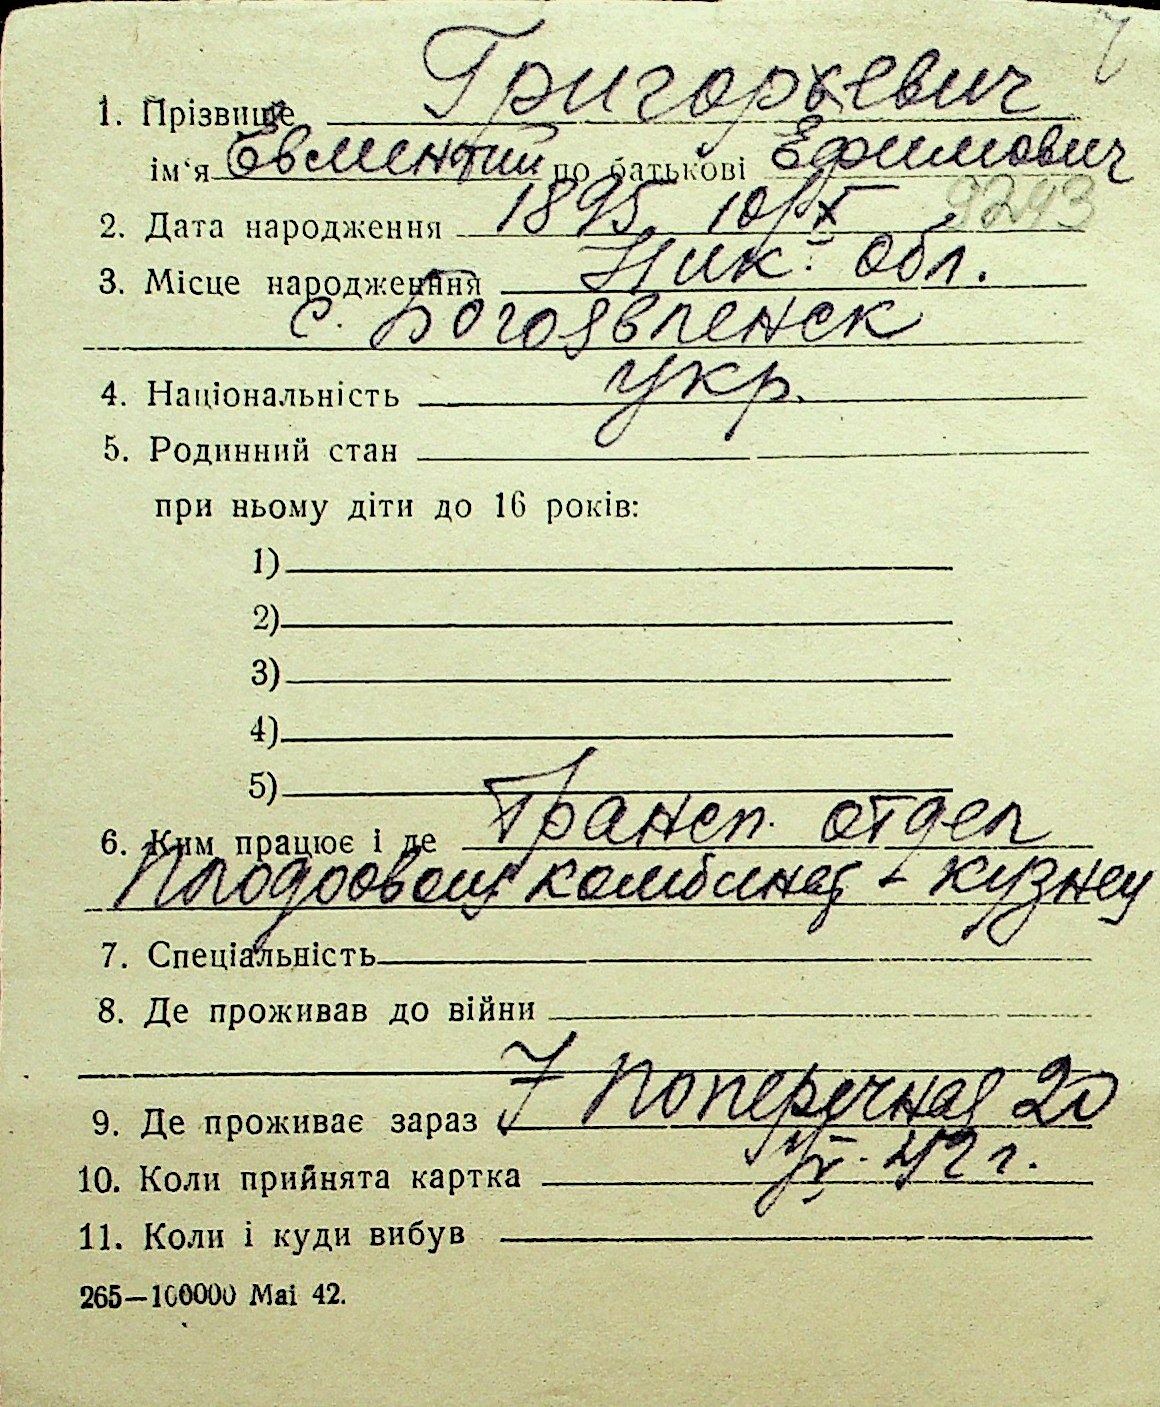 1. Прізвище Григорьевич
ім‘я Евментий по батькові Ефимович
2. Дата народження 1895 10/X 9243
3. Місце народження Ник. обл.
с. Богоявленск
4. Національність укр.
5. Родинний стан
при ньому діти до 16 років:
1)
2)
3)
4)
5)
6. Ким працює і де Трансп. отдел
комбинат - кузнец
7. Спеціальність
8. Де проживав до війни
9. Де проживає зараз 7 Поперечная 20
10. Коли прийнята картка 42 г.
11. Коли і куди вибув
265—100000 Маі 42.